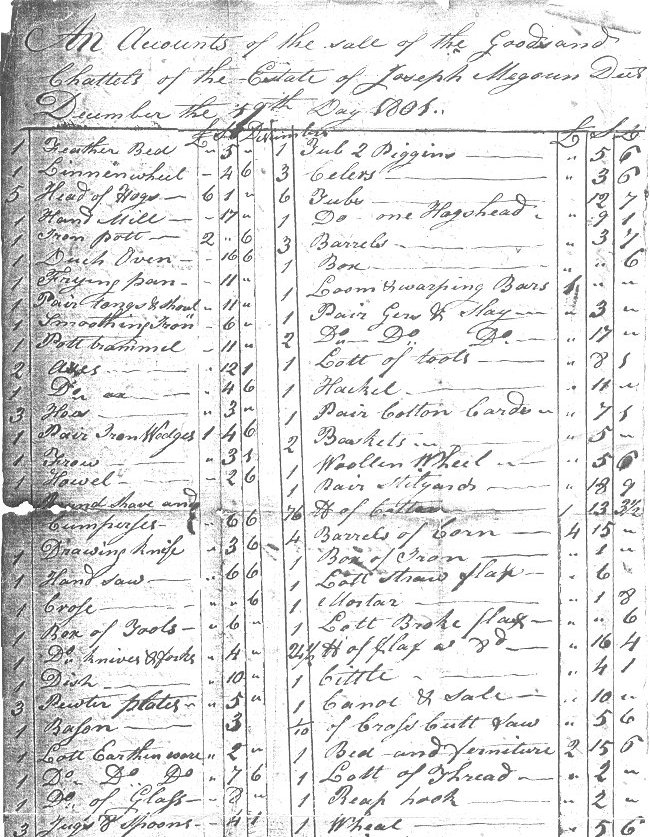 An Accounts of the sale of the Goods and
Chattels of the Estate of Joseph Megoun Decs
December the 19th Day 1801..
1 Feather Bed " 5 "
1 Linnen wheel — " 4 6
5 Head of Hogs — 6 1 "
1 Hand Mill — " 17 "
1 Iron pott — 2 " 6
1 Duch Oven — " 16 6
1 Frying pan — " 11 "
1 Pair Tongs & Shovl " 11 "
1 Smoothing Iron " 6 "
1 Pott trammel " 11 "
2 Axes — " 12 1
1 Do ax — " 4 6
3 Hoes — " 3 "
1 Pair Iron Wedges 1 4 6
1 Frow — " 3 1
1 Howel — " 2 6
Round shave and
— " 6 6
1 Drawing knife " 3 6
1 Hand saw — " 6 6
1 Crose — " " 6
1 Box of Tools — " 6 "
1 Do knives & forks " 4 "
1 Dish — " 10 "
3 Pewter plates " 5 "
1 Bason — 3
1 Lott Earthen ware " 2 "
1 Do Do Do " 7 6
1 Do of Glass — " 8 "
3 Jugs & Spoons — " 4 1
£ S D
1 Tub 2 Piggins — " 5 6
3 Celers — " 3 6
6 Tubs — " 12 7
1 Do one Hagshead " 9 1
3 Barrels — " 3 7
1 Box — " " 6
1 Loom & warping Bars 1 " "
1 Pair Gers & Slay — " 3 "
2 Do Do Do — " 17 "
1 Lott of tools — " 8 1
1 Hackel — " 11 "
1 Pair Cotton Cards " 7 1
2 Baskets — " 5 "
1 Woollen Wheel — " 5 6
1 Pair Stilyards — " 18 9
76 lb of Cotton — 1 13 3½
4 Barrels of Corn — 4 15 "
1 Box of Iron — " 1 "
1 Lott straw flax — " 6 "
1 Mortar — " 1 8
1 Lott Broke flax — " " 6
24½ lb of flax at 8d — " 16 4
1 Cittle — " 4 1
1 Canoe & sale — " 10 "
of Cross Cutt saw " 5 6
1 Bed and furniture 2 15 6
1 Lott of Thread — " 2 "
1 Reap hook — " 2 "
1 Wheal — " 5 6